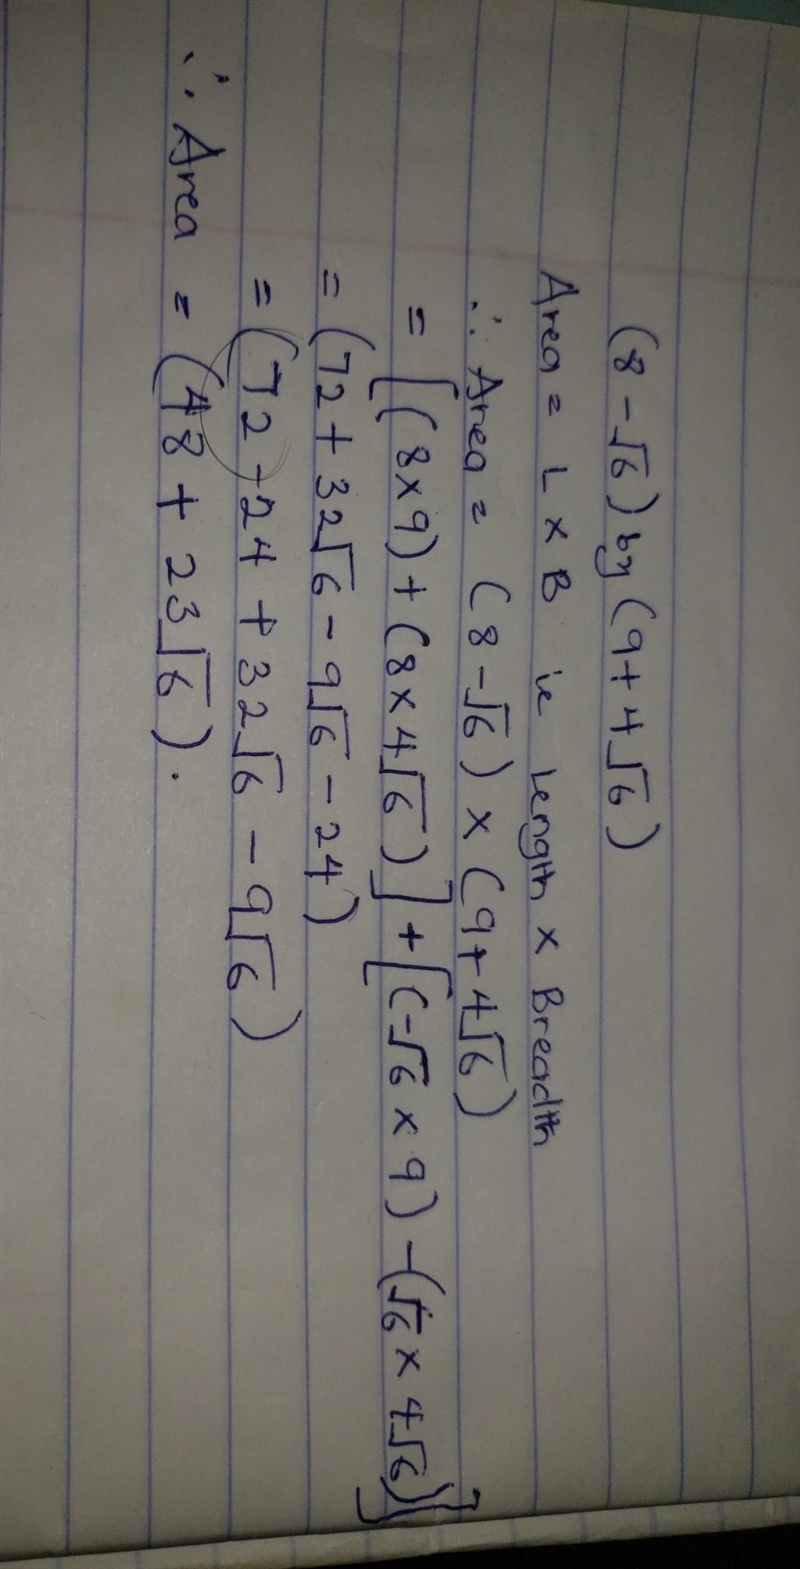 (8 - √6) by (9 + 4√6)
Area = L × B ie Length × Breadth
∴ Area = (8 - √6) × (9 + 4√6)
= [(8 × 9) + (8 × 4√6)] + [(-√6 × 9) - (√6 × 4√6)]
= (72 + 32√6 - 9√6 - 24)
= (72 - 24 + 32√6 - 9√6)
∴ Area = (48 + 23√6).